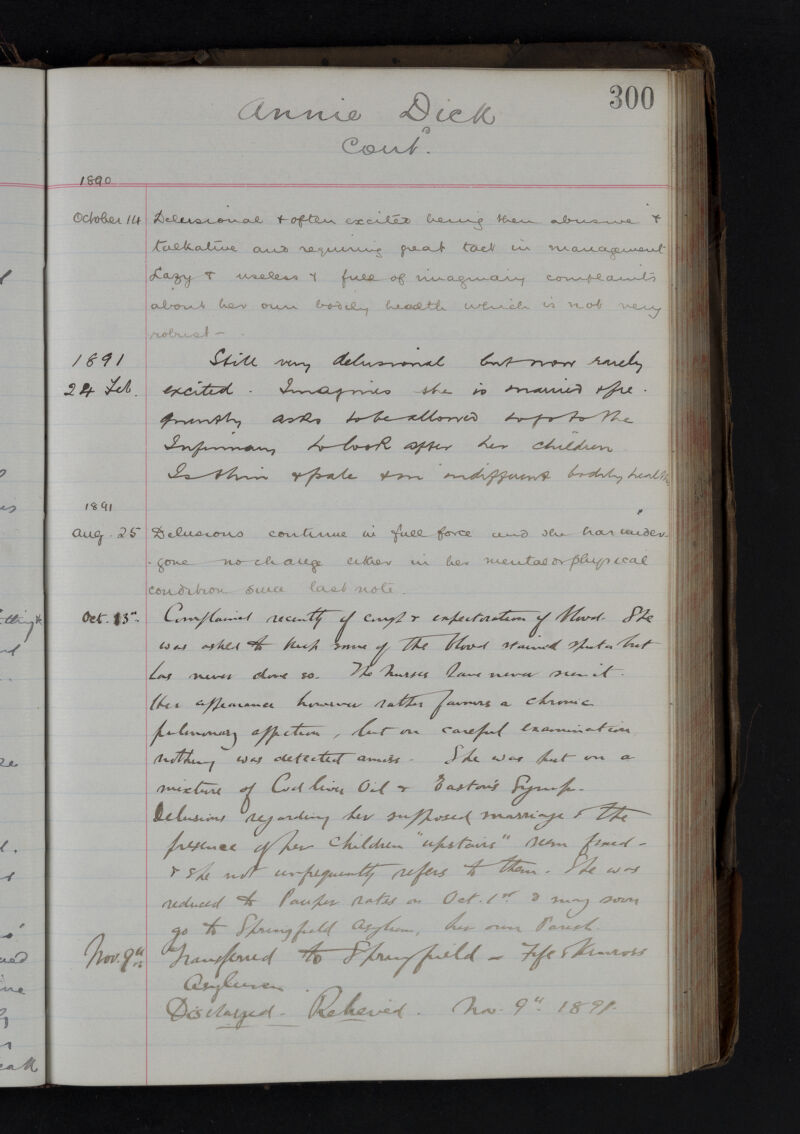 300
Annie Dick
Cont.d
1890
October 14 Delusional & often excited being then abusive &
talkative and requiring great tact in management
Lazy & useless & full of imaginary complaints
about her own bodily health which is not very
robust —
1891 Still very delusional but now rarely
24 Feb. excited. Imagines she is married & fre-
quently asks to be allowed to go to the
Infirmary to look after her children
Is thin & pale & in indifferent bodily health
1891
Aug. 25 Delusions continue in full force and she has under-
-gone no change either in her mental or physical
condition since last note.
Oct. 13th. Complained recently of cough & expectoration of blood. She
was asked to keep some of the blood stained sputa but
has never done so. The nurses have never seen it.
Her appearance however rather favours a chronic
pulmonary affection, but on careful examination
nothing was detected amiss. She was put on a
mixture of Cod liver Oil & Easton's Syrup.
Delusions regarding her supposed marriage & the
presence of her children "upstairs" seem fixed -
& she not unfrequently refers to them. She was
reduced to Pauper rates on Oct. 1st & may soon
go to Springfield Asylum, her own Parish.
Nov. 9th Transferred to Springfield – Fife & Kinross
Asylum.
Discharged. Relieved. Nov. 9th 1891.